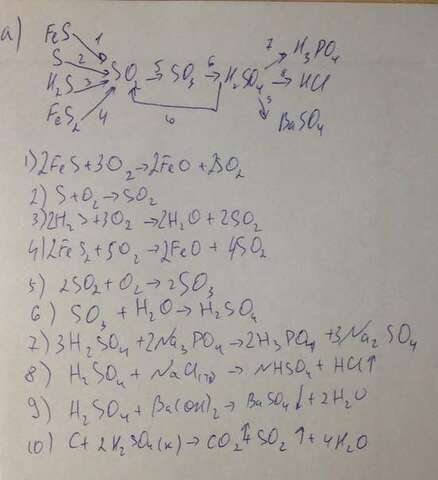 а)
FeS 1
S 2
H₂S 3
FeS₂ 4
SO₂ 5 SO₃ 6 H₂SO₄
7 H₃PO₄
8 HCl
9 BaSO₄
6
1) 2FeS+3O₂→2FeO+2SO₂
2) S+O₂→SO₂
3) 2H₂S+3O₂→2H₂O+2SO₂
4) 2FeS₂+5O₂→2FeO+4SO₂
5) 2SO₂+O₂→2SO₃
6) SO₃+H₂O→H₂SO₄
7) 3H₂SO₄+2Na₃PO₄→2H₃PO₄+3Na₂SO₄
8) H₂SO₄+NaCl(тв)→NHSO₄+HCl↑
9) H₂SO₄+Ba(OH)₂→BaSO₄↓+2H₂O
10) C+2H₂SO₄(к)→CO₂↑+SO₂↑+4H₂O